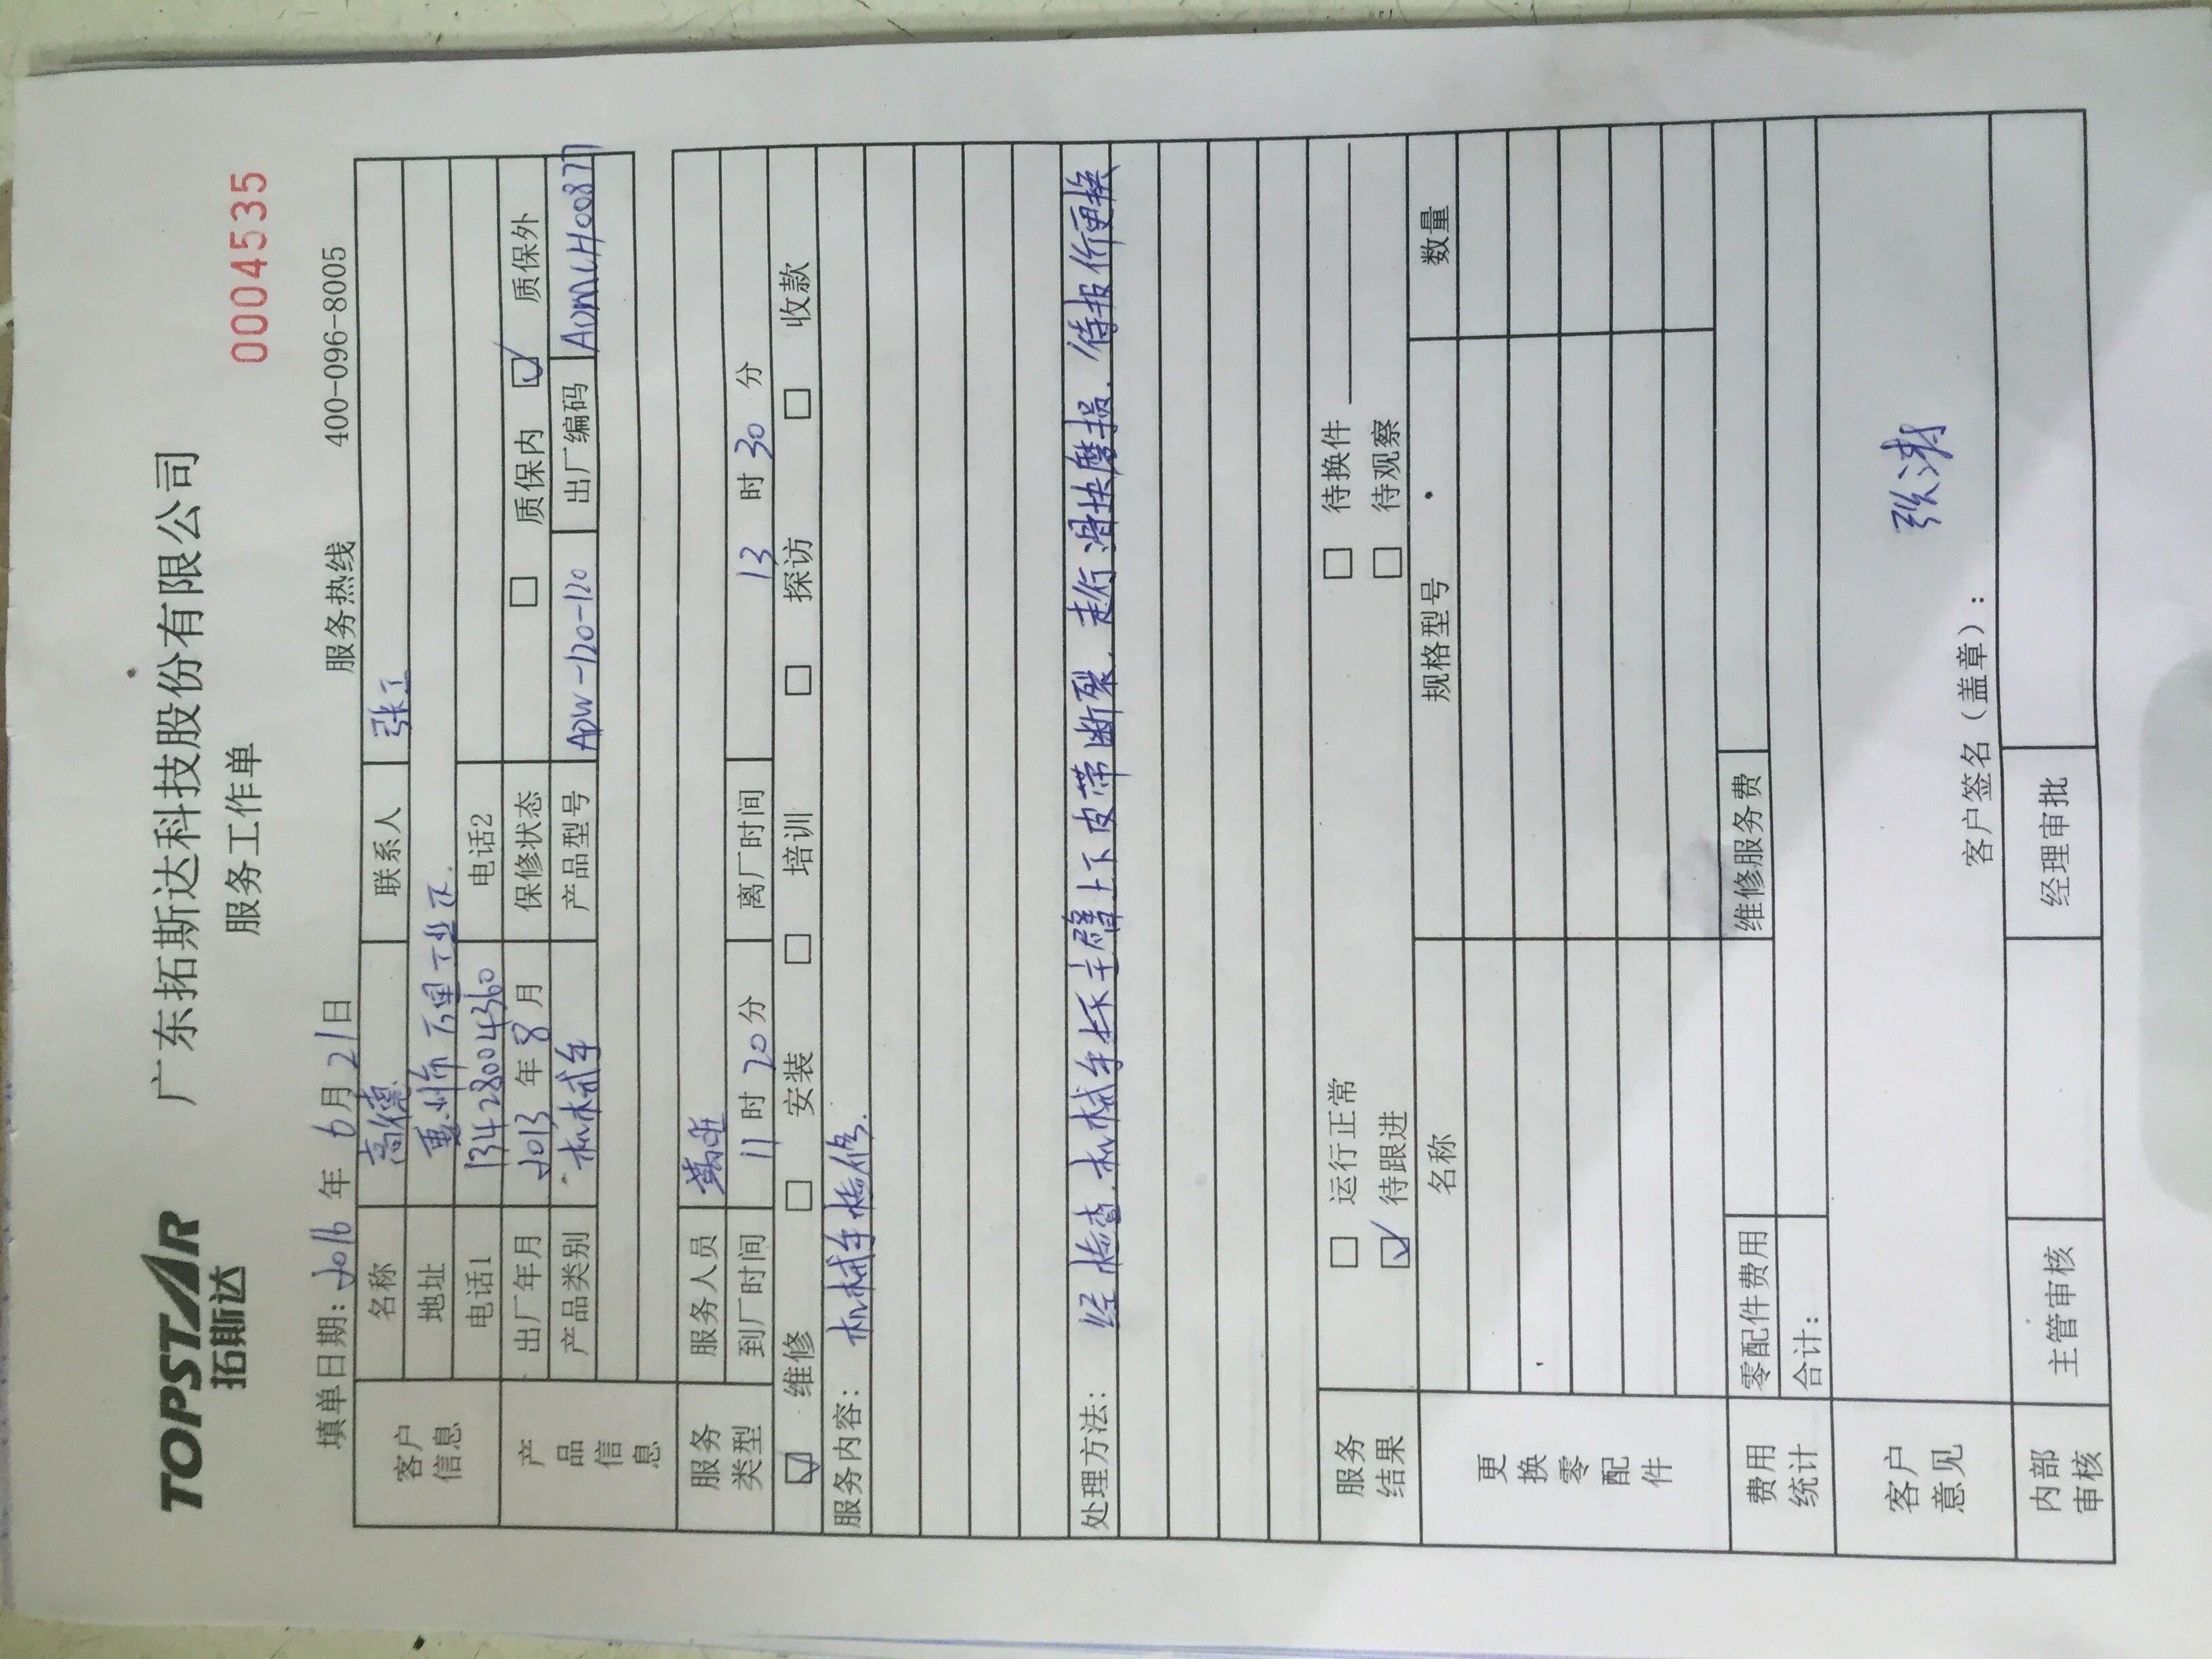 TOPSTAR
拓斯达
广东拓斯达科技股份有限公司
服务工作单
0004535
填单日期: 2016 年 6月 21日 服务热线 400-096-8005
客户信息 名称 高德 联系人 张工
地址 惠州市 工业区.
电话1 13428004360 电话2
产品信息 出厂年月 2013 年 8 月 保修状态 □ 质保内 ☑ 质保外
产品类别 机械手 产品型号 ADW-120-120 出厂编码
服务类型 服务人员
到厂时间 11 时 20 分 离厂时间 13 时 30 分
☑ 维修 □ 安装 □ 培训 □ 探访 □ 收款
服务内容: 机械手检修.
处理方法: 经检查.机械手 主臂上下皮带断裂.走行滑块磨损.待报价更换
服务结果 □ 运行正常 □ 待换件
☑ 待跟进 □ 待观察
更换零配件 名称 规格型号 数量
费用统计 零配件费用 维修服务费
合计:
客户意见 张
客户签名(盖章):
内部审核 主管审核 经理审批